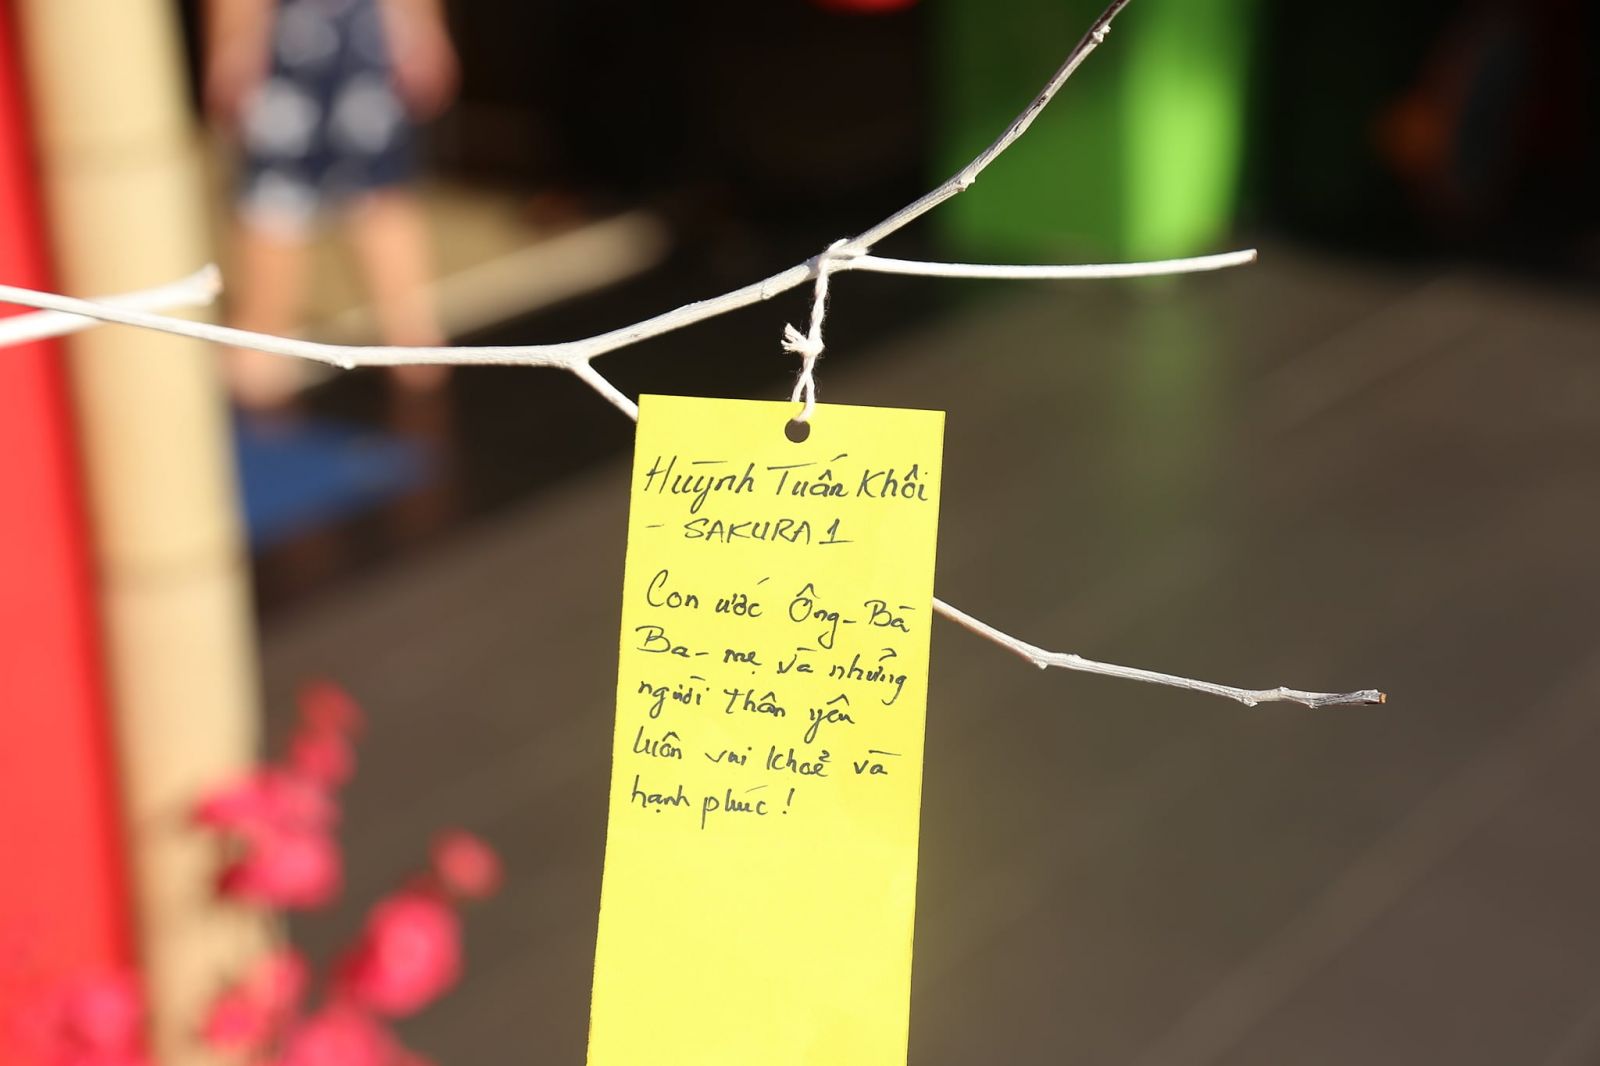 Huỳnh Tuấn Khôi
- SAKURA 1
Con ước Ông-Bà
Ba-mẹ và những
người thân yêu
luôn vui khoẻ và
hạnh phúc!